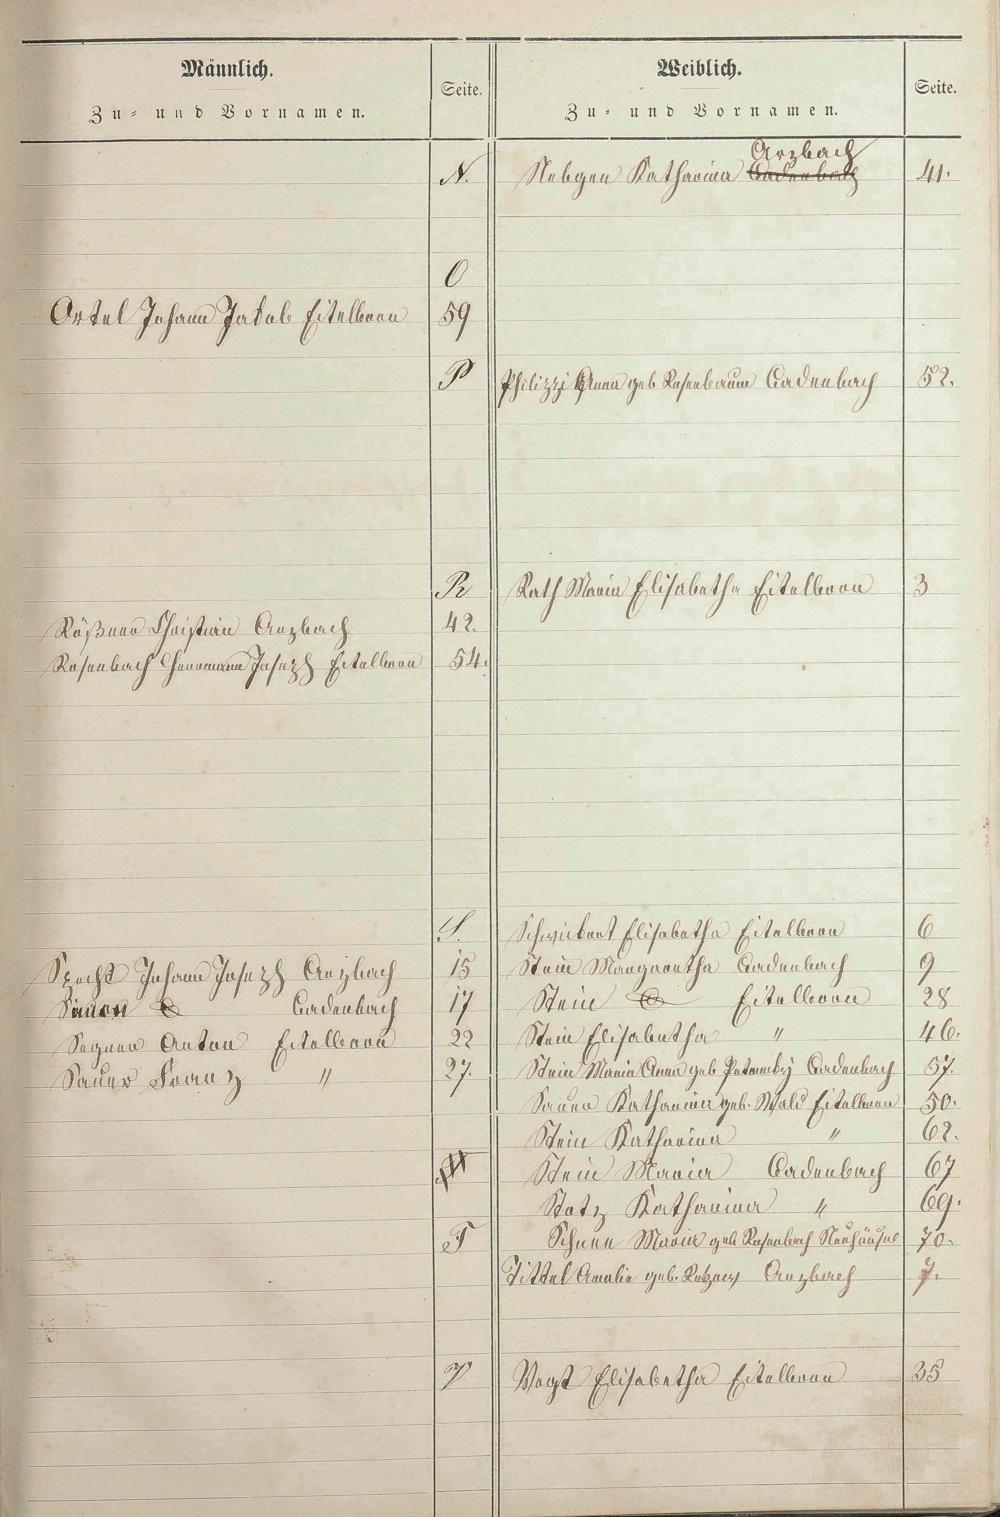 Männlich.
Zu- und Vornamen.
Seite.
Weiblich.
Zu- und Vornamen.
Seite.
N.
Arzbach
Nebgen Katharina Cadenbach 41.
O
Ortel Johann Jakob Eitelborn 59
P
Philizzi Anna geb Rosenbaum Cadenbach 52.
R
Rath Maria Elisabetha Eitelborn 3
Rößner Christian Arzbach 42.
Rosenbach Herrmann Joseph Eitelborn 54.
S.
Schwickert Elisabetha Eitelborn 6
Specht Johann Joseph Arzbach 15
Stein Margaretha Cadenbach 9
Simon Cadenbach 17
Stein Eitelborn 28
Anton Eitelborn 22
Stein Elisabetha " 46.
Sauer Franz " 27.
Stein Maria Anna geb Cadenbach 57.
Sauer Katharina geb. Wald Eitelborn 50.
Stein Katharina " 62.
Stein Maria Cadenbach 67
Statz Katharina " 69.
T
Schnee Maria geb Rosenbach Neuhäusel 70.
Tittel Amalie geb. Arzbach 7.
V
Vogt Elisabetha Eitelborn 35